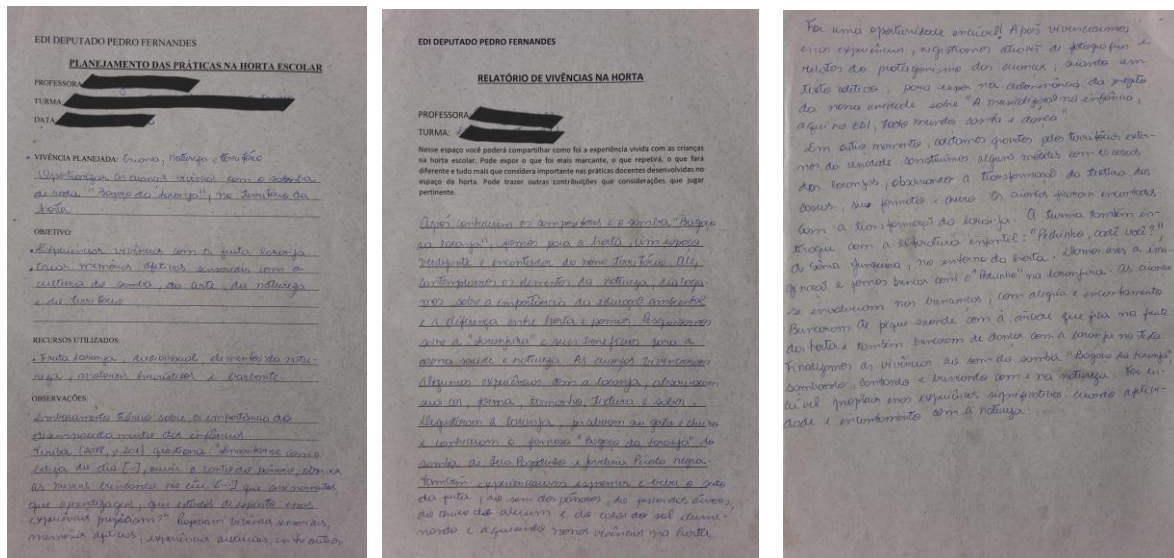 EDI DEPUTADO PEDRO FERNANDES
PLANEJAMENTO DAS PRÁTICAS NA HORTA ESCOLAR
PROFESSORA
TURMA:
DATA:
VIVÊNCIA PLANEJADA: Criança, natureza e território
Oportunizar às crianças vivências com o samba
de roda "Bagaço da Laranja", no território da
horta
OBJETIVO:
Experienciar vivências com a fruta laranja.
Criar memórias afetivas, sensoriais com a
cultura do samba, da arte, da natureza
e do território
RECURSOS UTILIZADOS:
Fruta laranja, audiovisual, elementos da natu-
reza, materiais heurísticos e barbante.
OBSERVAÇÕES:
Embasamento teórico sobre a importância do
das infâncias.
Tiriba (2018, p.201) questiona: "
beleza do dia [...], ouvir o canto do pássaro, observar
as nuvens brincando no céu [...] que
que aprendizagens, que estados de espírito essas
experiências propiciam?" Propiciam
memórias afetivas, experiências culturais, entre outros.
EDI DEPUTADO PEDRO FERNANDES
RELATÓRIO DE VIVÊNCIAS NA HORTA
PROFESSORA:
TURMA:
Nesse espaço você poderá compartilhar como foi a experiência vivida com as crianças
na horta escolar. Pode expor o que foi mais marcante, o que repetirá, o que fará
diferente e tudo mais que considera importante nas práticas docentes desenvolvidas no
espaço da horta. Pode trazer outras contribuições que considerações que jugar
pertinente.
Após conhecerem os compositores e o samba "Bagaço
da laranja", fomos para a horta, um espaço
e encantador do nosso território. Ali,
contemplamos os elementos da natureza, dialoga
mos sobre a importância da educação ambiental
e a diferença entre horta e pomar. Pesquisamos
sobre a "laranjeira" e seus benefícios para a
nossa saúde e natureza. As crianças vivenciaram
algumas experiências com a laranja, observaram
sua cor, forma, tamanho, textura e sabor.
Degustaram a laranja, provaram seu gosto e cheiro
e conheceram o famoso "Bagaço da Laranja" do
samba de Zeca Pagodinho e Jovelina Pérola negra.
Também experienciaram espremer e beber o suco
da fruta, ao som dos pássaros, do
do cheiro do alecrim e do calor do sol ilumi-
nando e aquecendo nossas vivências na horta.
Foi uma oportunidade incrível! Após vivenciarmos
essas experiências, registramos através de fotografias e
relatos do protagonismo das crianças, criando um
texto coletivo, para expor na culminância do projeto
da nossa unidade sobre "A musicalização na infância,
aqui no EDI, todo mundo samba e dança"
Em outro momento, coletamos gravetos pelos territórios exter-
nos da unidade construímos alguns móbiles com as cascas
das laranjas, observando a transformação da textura das
cascas, seu formato e cheiro. As crianças ficaram encantadas
com a transformação da laranja. A turma também in-
teragiu com a literatura infantil: "Pedrinho, cadê você?"
de Sônia Junqueira, no entorno da horta. Demos asas à ima
ginação e fomos brincar com o "Pedrinho" na laranjeira. As crianças
se envolveram nas brincadeiras, com alegria e encantamento
Brincaram de pique esconde com a árvore que fica na frente
da horta e também brincaram de dançar com a laranja na testa.
Finalizamos as vivências ao som do samba "Bagaço da laranja",
sambando, cantando e brincando com e na natureza. Foi in-
crível propiciar essas experiências significativas criando afetivi-
dade e encantamento com a natureza.